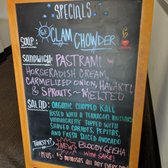 SPECIALS
SOUP: CLAM CHOWDER
SANDWICH: PASTRAMI
HORSERADISH CREAM,
CARMELIZED ONION, HAVARTI
& SPROUTS - MELTED
SALAD: ORGANIC CHOPPED KALE
TOSSED WITH A TARRAGON MUSTARD
VINAIGRETTE TOPPED WITH
SHAVED CARROTS, PEPITAS,
AND FRESH SLICED AVOCADO
THIRSTY? BLOODY GEISHA
PLUS: $5 MIMOSAS ALL DAY EVERY DAY